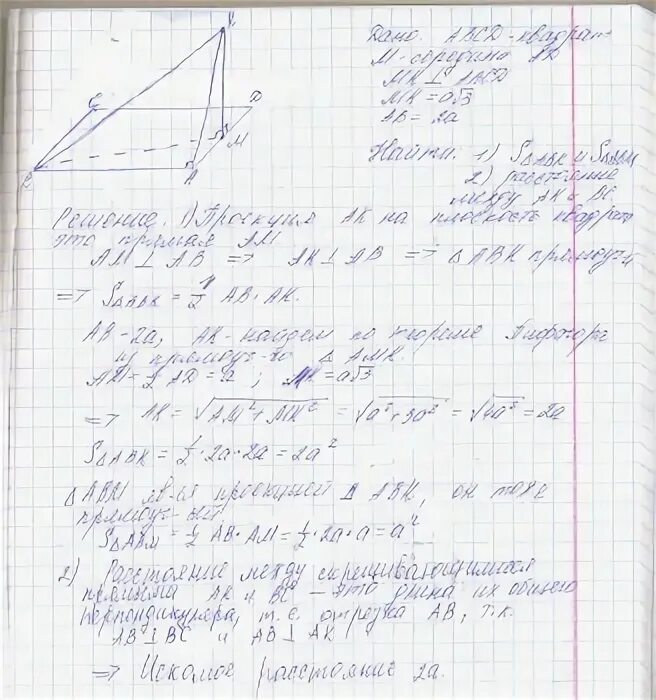 K
C
D
B
A
M
Дано: ABCD - квадрат
M - середина AD
MK ⊥ ABCD
MK = a√3
AB = 2a
Найти: 1) S△ABK и S△ABM
2) расстояние
между AK и BC
Решение. 1) Проекция AK на плоскость квадрата
это прямая AM
AM ⊥ AB => AK ⊥ AB => △ ABK прямоуг-й
=> S△ABK = 1/2 AB · AK.
AB - 2a, AK - найдем по теореме Пифагора
из прямоуг-го △ AMK.
AM = 1/2 AD = a ; MK = a√3
=> AK = √AM² + MK² = √a² + 3a² = √4a² = 2a
S△ABK = 1/2 · 2a · 2a = 2a²
△ ABM явл-ся проекцией △ ABK, он тоже
прямоуг-ый.
S△ABM = 1/2 AB · AM = 1/2 · 2a · a = a²
2) Расстояние между скрещивающимися
прямыми AK и BC - это длина их общего
перпендикуляра, т.е. отрезка AB, т.к.
AB ⊥ BC и AB ⊥ AK
=> Искомое расстояние 2a.